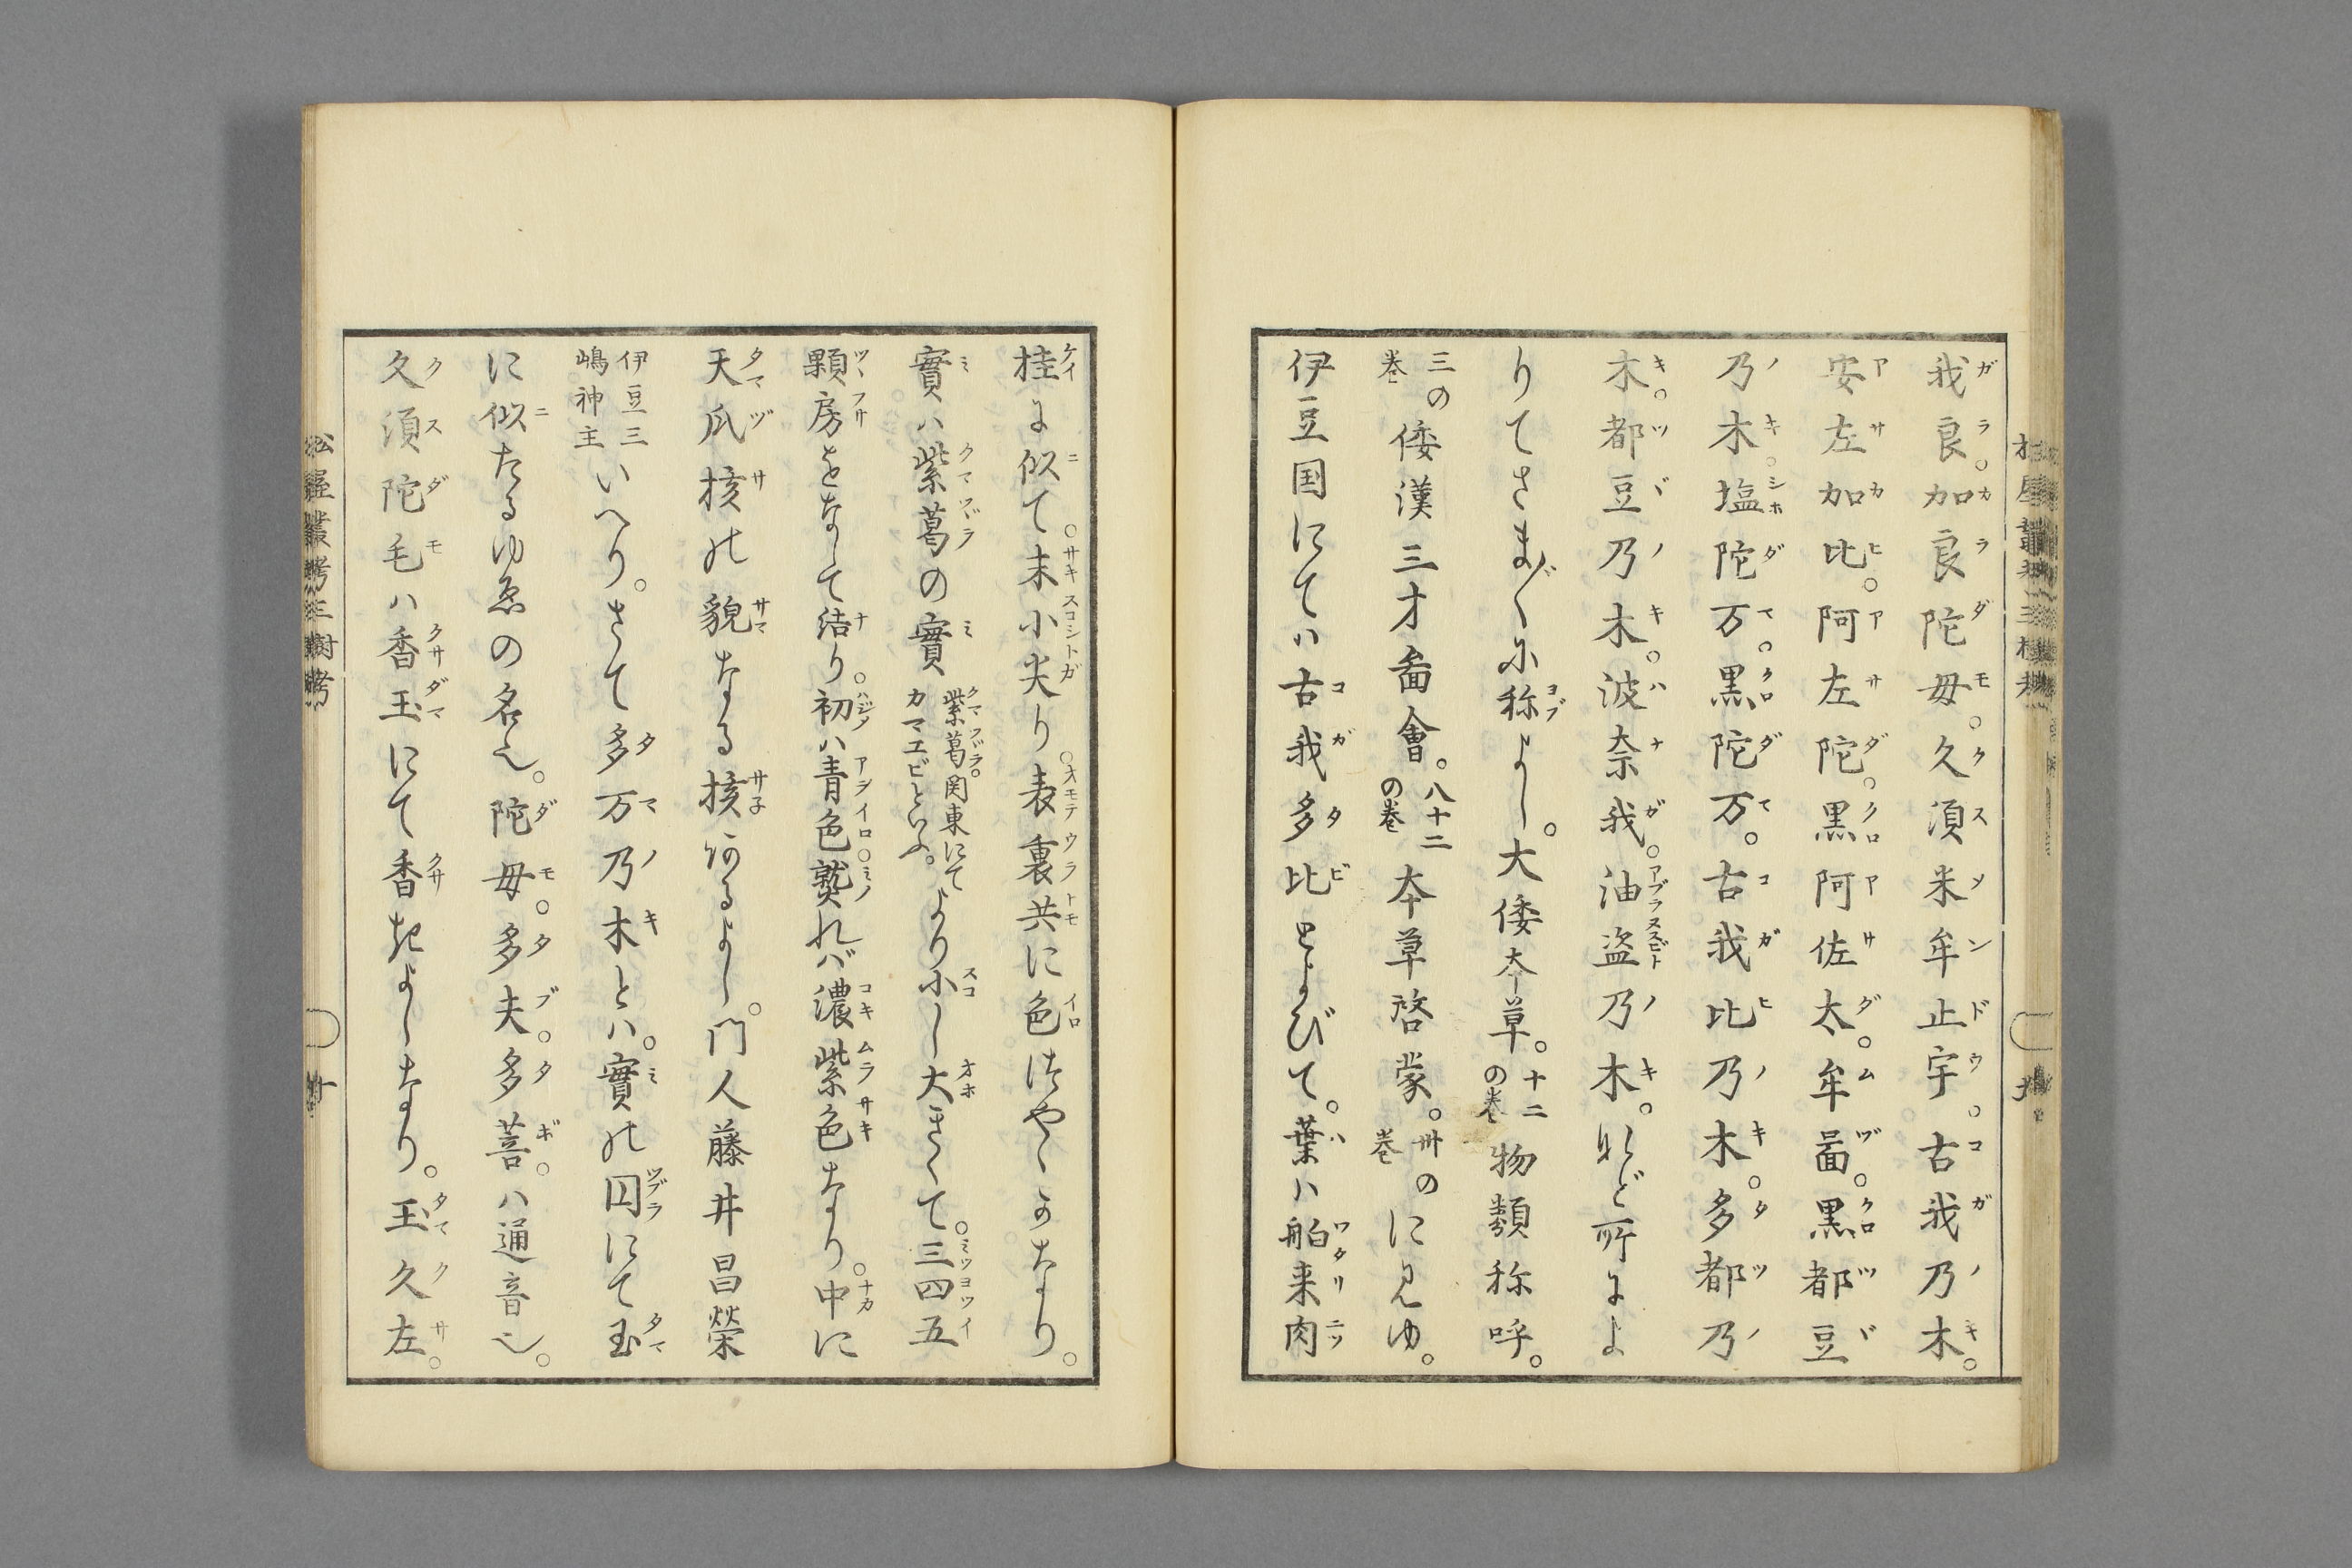 我良。加良陀毋。久須米牟止宇。古我乃木。
安左加比。阿左陀。黒阿佐太。牟啚。黒都豆
乃木。塩陀万。黒陀万。古我比乃木。多都乃
木。都豆乃木。波奈我。油盗乃木。など所によ
りてさま〴〵に称よし。大倭本草。十二の巻物類称呼。
三の巻倭漢三才啚會。八十二の巻本草啓蒙。卅の巻にみゆ。
伊豆国にてハ古我多比とよびて。葉ハ舶来肉
桂に似て。末小尖り。表裏共に色つやゝかなり。
實ハ紫葛の實紫葛。関東にてカマエビといふ。より小し大きくて。三四五
顆房をなして結り。初ハ青色。熟れバ濃紫色なり。中に
天瓜核の貌なる核あるよし。門人藤井昌榮
伊豆三嶋神主いへり。さて多万乃木とハ。實の囚にて玉
に似たるゆゑの名也。陀毋。多夫。多菩。ハ通音也。
久須陀毛ハ香玉にて香きよしなり。玉久左。
松屋叢考三樹考